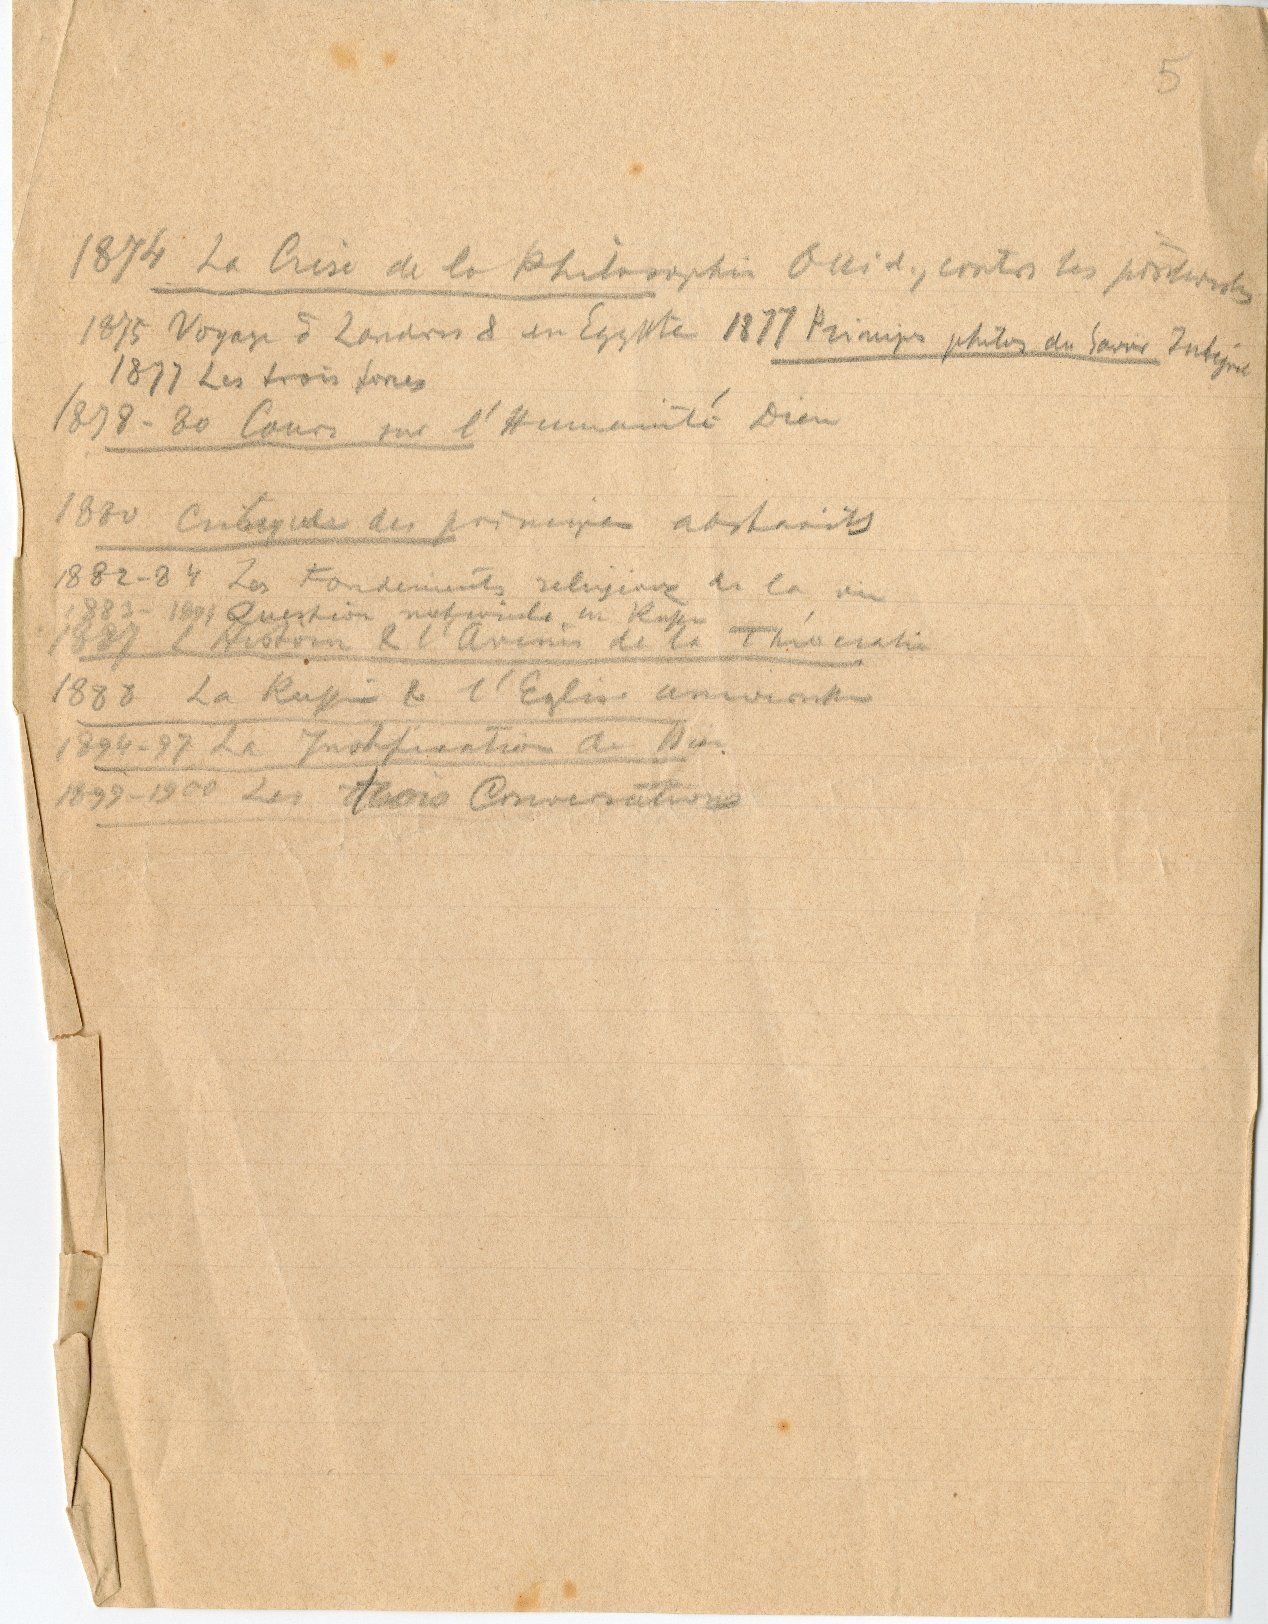 5
1874 La Crise de la Philosophie Occid., contre les positivistes
1875 Voyage à Londres & en Egypte 1877 Principes philos du Savoir Intégral
1877 Les trois forces
1878-80 Cours sur l'Humanité Dieu
1880 Critique des principes abstraits
1882-84 Les Fondements religieux de la vie
1883-1891 Question nationale en Russie
1887 L'Histoire & l'Avenir de la Théocratie
1888 La Russie & l'Eglise universelle
1894-97 La Justification du Bien
1899-1900 Les trois Conversations